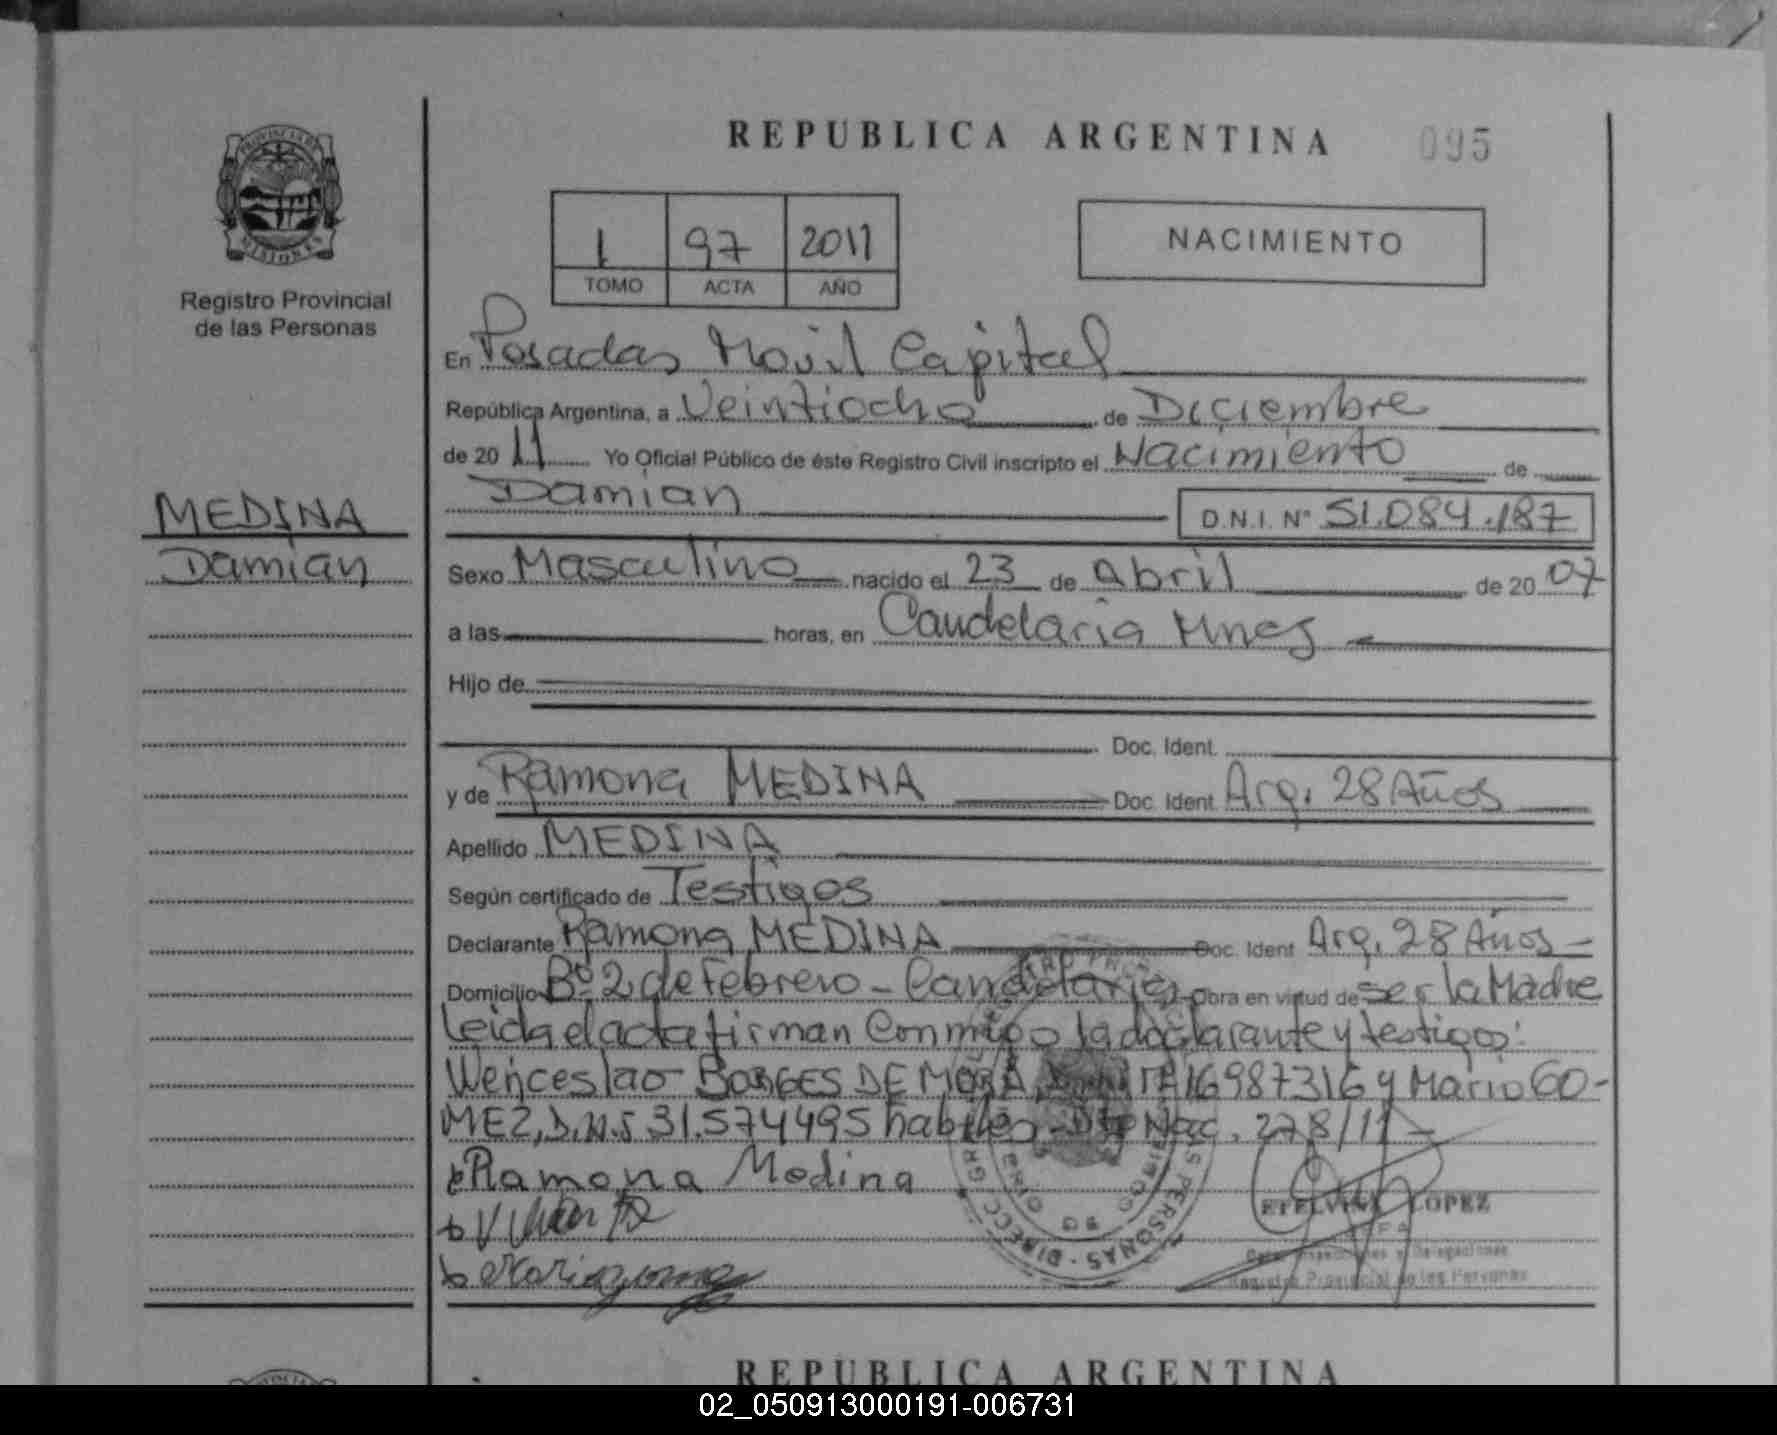 REPUBLICA ARGENTINA 095
PROVINCIA DE
MISIONES
Registro Provincial
de las Personas
1 97 2011
TOMO ACTA AÑO
NACIMIENTO
En Posadas Movil Capital
República Argentina, a Veintiocho de Diciembre
de 2011 Yo Oficial Público de éste Registro Civil inscripto el Nacimiento de
Damian D.N.I. Nº 51.084.187
MEDINA
Damian
Sexo Masculino nacido el 23 de Abril de 2007
a las horas, en Candelaria Mnes
Hijo de
Doc. Ident.
y de Ramona MEDINA Doc. Ident. Arg. 28 Años
Apellido MEDINA
Según certificado de Testigos
Declarante Ramona MEDINA Doc. Ident. Arg. 28 Años
Domicilio Bº 2 de Febrero - Candelaria Obra en virtud de ser la Madre
Leida el acta firman conmigo la declarante y testigos:
Wenceslao BORGES DE MORA 16987316 y Mario GO-
MEZ, D.N.I 31.574495 habiles - Nac. 278/11
Ramona Medina
ETELVINA LOPEZ
Registro Provincial de las Personas
REPUBLICA ARGENTINA
02_050913000191-006731